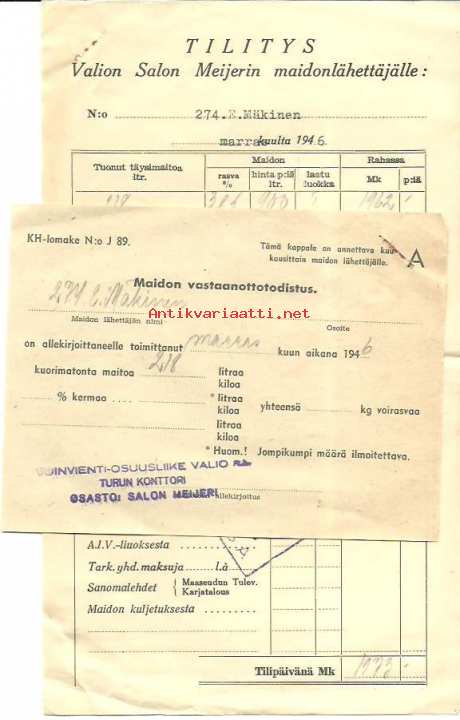 TILITYS
Valion Salon Meijerin maidonlähettäjälle:
N:o 274.E.Mäkinen
marras kuulta 1946.
Tuonut täysimaitoa ltr.
Maidon
Rahassa
rasva % hinta p:iä ltr. laatu luokka Mk p:iä
KH-lomake N:o J 89.
Tämä kappale on annettava kuu-
kausittain maidon lähettäjälle.
A
Maidon vastaanottotodistus.
274 E. Mäkinen
Antikvariaatti.net
Maidon lähettäjän nimi Osoite
on allekirjoittaneelle toimittanut marras kuun aikana 1946
kuorimatonta maitoa 218 litraa
kiloa
% kermaa .... * litraa
kiloa yhteensä kg voirasvaa
litraa
kiloa
* Huom.! Jompikumpi määrä ilmoitettava.
OINVIENTI-OSUUSLIIKE VALIO
TURUN KONTTORI
OSASTO: SALON MEIJERI
allekirjoitus
A.I.V.-liuoksesta
Tark. yhd. maksuja ...... l.à
Sanomalehdet { Maaseudun Tulev.
Karjatalous
Maidon kuljetuksesta
Tilipäivänä Mk